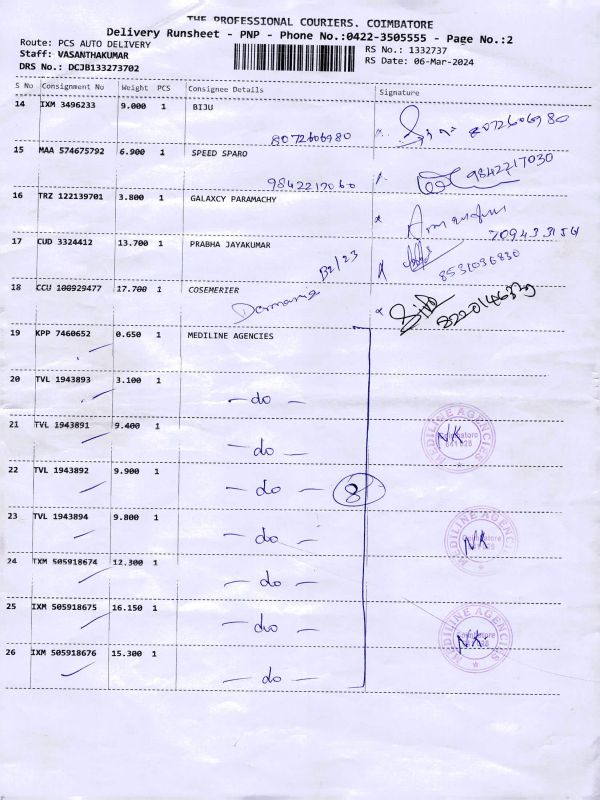 THE PROFESSIONAL COURIERS. COIMBATORE
Delivery Runsheet - PNP - Phone No.:0422-3505555 - Page No.:2
Route: PCS AUTO DELIVERY
RS No.: 1332737
Staff: VASANTHAKUMAR
RS Date: 06-Mar-2024
DRS No.: DCJB133273702
S No Consignment No Weight PCS Consignee Details Signature
14 IXM 3496233 9.000 1 BIJU
8072606980 8072606980
15 MAA 574675792 6.900 1 SPEED SPARO
9842217030
9842217060
16 TRZ 122139701 3.800 1 GALAXCY PARAMACHY
17 CUD 3324412 13.700 1 PRABHA JAYAKUMAR
B2/23 8531036830
18 CCU 100929477 17.700 1 COSEMERIER
19 KPP 7460652 0.650 1 MEDILINE AGENCIES
20 TVL 1943893 3.100 1
- do -
21 TVL 1943891 9.400 1
- do -
MEDILINE AGENCIES
Coimbatore
NK
22 TVL 1943892 9.900 1
- do - 8
23 TVL 1943894 9.800 1
- do -
MEDILINE AGENCIES
NK
24 IXM 505918674 12.300 1
- do -
25 IXM 505918675 16.150 1
- do -
MEDILINE AGENCIES
Coimbatore
NK
26 IXM 505918676 15.300 1
- do -